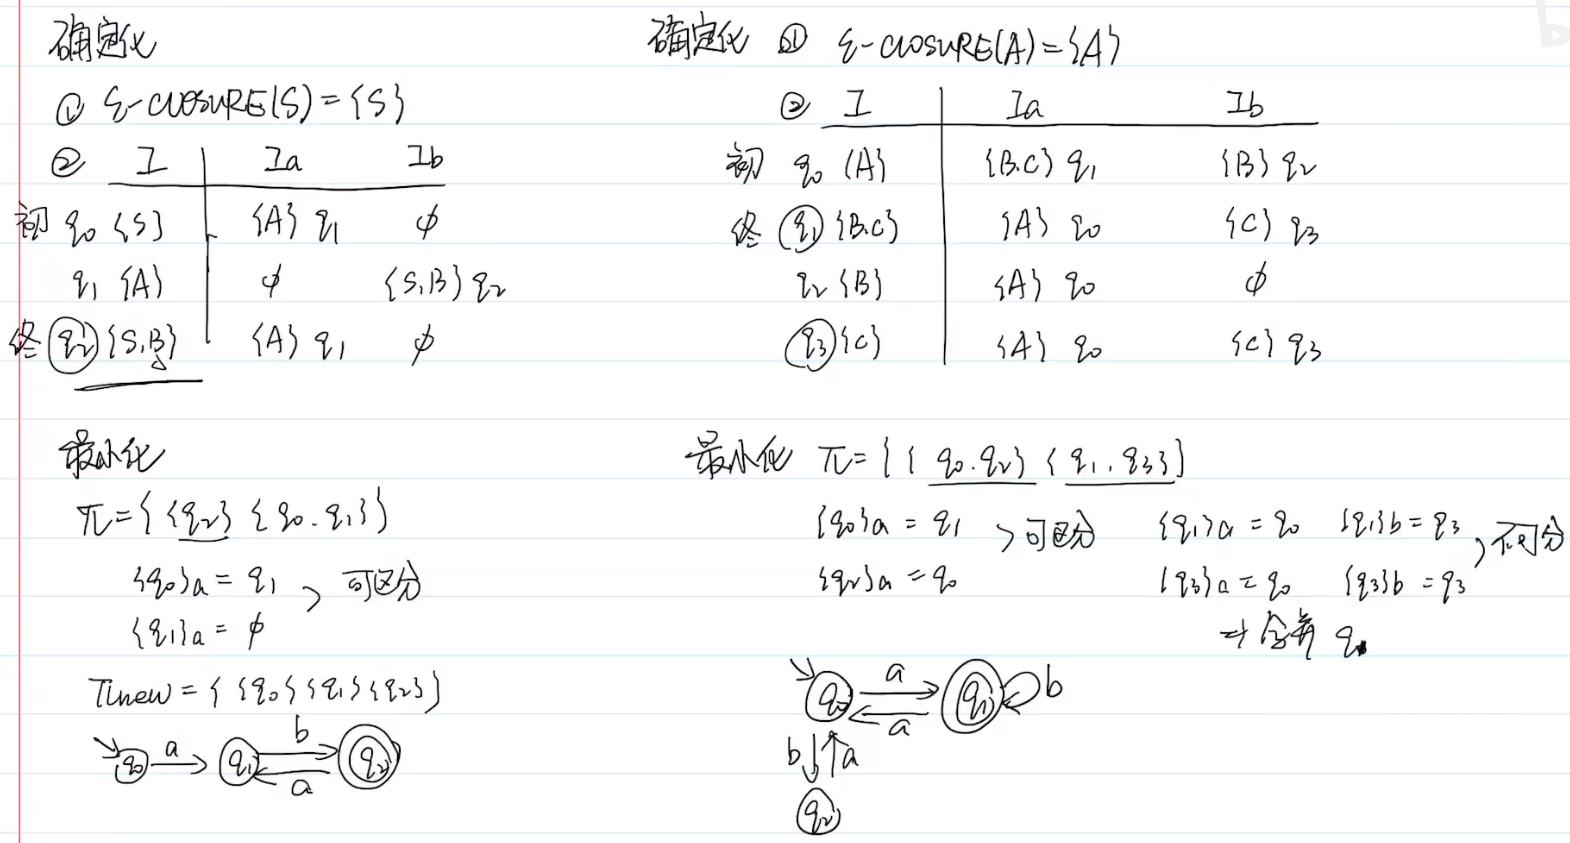 确定化
① ε-CLOSURE(S)={S}
② I Ia Ib
初 q0 {S} {A} q1 φ
q1 {A} φ {S,B} q2
终 q2 {S,B} {A} q1 φ
最小化
π={ {q2} {q0.q1} }
{q0}a = q1
可区分
{q1}a = φ
πnew = { {q0} {q1} {q2} }
q0 a q1 b a q2
确定化 ① ε-CLOSURE(A)={A}
② I Ia Ib
初 q0 {A} {B.C} q1 {B} q2
终 q1 {B.C} {A} q0 {C} q3
q2 {B} {A} q0 φ
q3 {C} {A} q0 {C} q3
最小化 π={ { q0.q2} { q1.q3} }
{q0}a = q1 可区分 {q1}a = q0 {q1}b = q3 不可分
{q2}a = q0 {q3}a = q0 {q3}b = q3
⇒ 合并
q0 a a q1 b
b a
q2